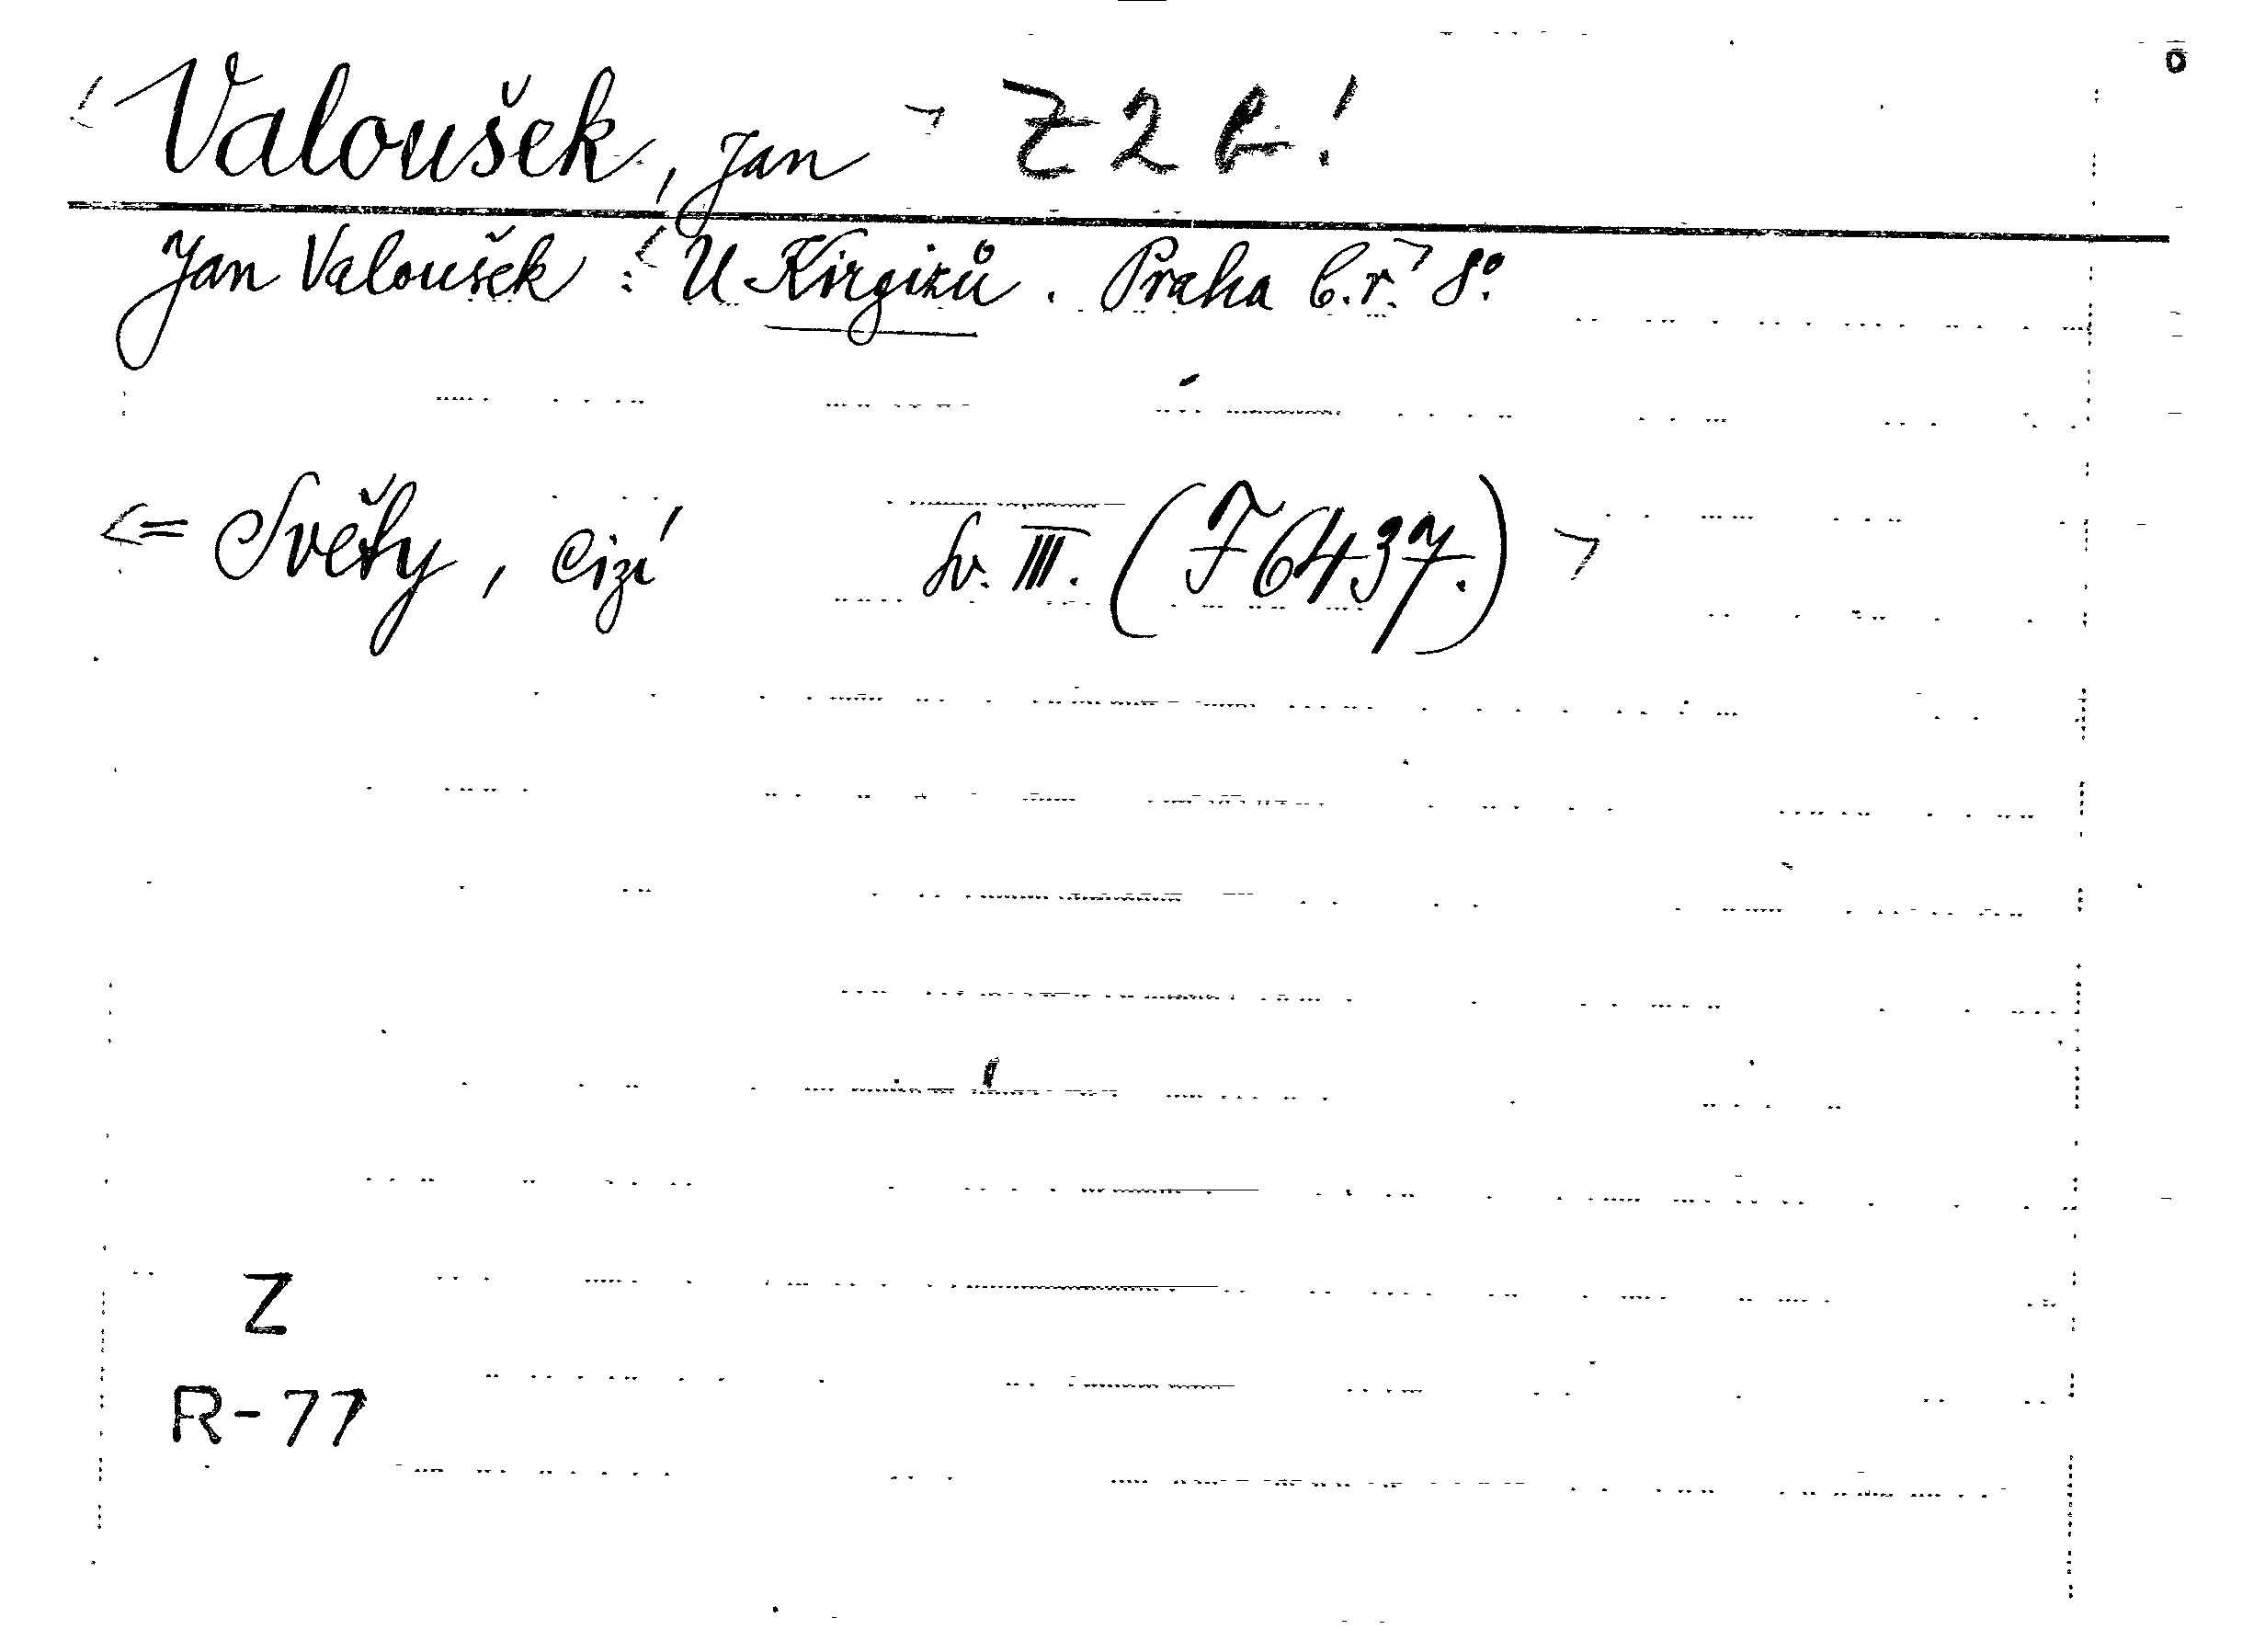 <Valoušek, Jan> Z 2 b!
Jan Valoušek: <U Kirgizů. Praha b.r.> 8°.
<= Světy, cizí sv. III. (F 6437.)>
Z
R-77